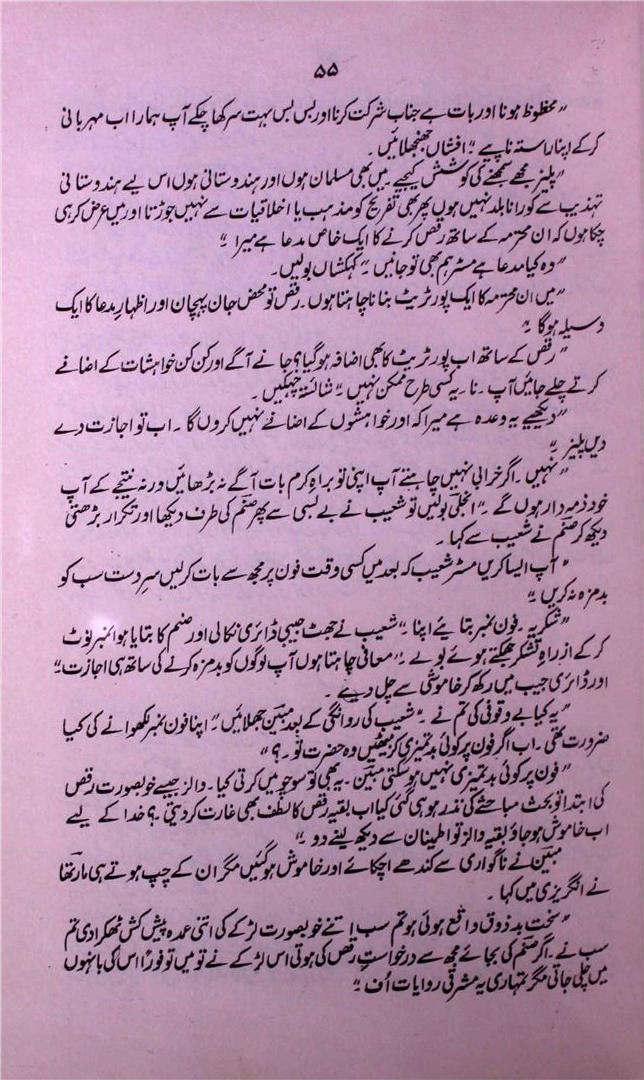 ۵۵
"محظوظ ہونا اور بات ہے جناب شرکت کرنا اور بس بس بہت سر کھا چکے آپ ہمارا اب مہربانی
کرکے اپنا راستہ ناپیے" افشاں جھنجھلائیں۔
"پلیز مجھے سمجھنے کی کوشش کیجیے۔ میں بھی مسلمان ہوں اور ہندوستانی ہوں اس لیے ہندوستانی
تہذیب سے کورا نابلد نہیں ہوں پھر بھی تفریح کو مذہب یا اخلاقیات سے نہیں جوڑتا اور میں عرض کر ہی
چکا ہوں کہ ان محترمہ کے ساتھ رقص کرنے کا ایک خاص مدعا ہے میرا"
"وہ کیا مدعا ہے مسٹر ہم بھی تو جانیں" کہکشاں بولیں۔
"میں ان محترمہ کا ایک پورٹریٹ بنانا چاہتا ہوں۔ رقص تو محض جان پہچان اور اظہارِ مدعا کا ایک
وسیلہ ہوگا"
"رقص کے ساتھ اب پورٹریٹ کا بھی اضافہ ہوگیا؟ جانے آگے اور کن کن خواہشات کے اضافے
کرتے چلے جائیں آپ۔ نا۔ یہ کسی طرح ممکن نہیں" شائستہ چہکیں۔
"دیکھیے یہ وعدہ ہے میرا کہ اور خواہشوں کے اضافے نہیں کروں گا۔ اب تو اجازت دے
دیں پلیز"
"نہیں۔ اگر خرابی نہیں چاہتے آپ اپنی تو براہِ کرم بات آگے نہ بڑھائیں ورنہ نتیجے کے آپ
خود ذمہ دار ہوں گے۔" انجلی بولیں تو شعیب نے بے بسی سے پھر صنم کی طرف دیکھا اور تکرار بڑھتی
دیکھ کر صنم نے شعیب سے کہا۔
"آپ ایسا کریں مسٹر شعیب کہ بعد میں کسی وقت فون پر مجھ سے بات کرلیں سرِدست سب کو
بدمزہ نہ کریں"
"شکریہ۔ فون نمبر بتائیے اپنا" شعیب نے جھٹ جیبی ڈائری نکالی اور صنم کا بتایا ہوا نمبر نوٹ
کرکے از راہِ تشکر جھکتے ہوئے بولے۔ "معافی چاہتا ہوں آپ لوگوں کو بدمزہ کرنے کی ساتھ ہی اجازت"
اور ڈائری جیب میں رکھ کر خاموشی سے چل دیے۔
"یہ کیا بے وقوفی کی تم نے" شعیب کی روانگی کے بعد مبین جھلائیں "اپنا فون نمبر لکھوانے کی کیا
ضرورت تھی۔ اب اگر فون پر کوئی بدتمیزی کر بیٹھیں وہ حضرت تو۔؟"
"فون پر کوئی بدتمیزی نہیں ہوسکتی مبین۔ یہ بھی تو سوچو میں کرتی کیا۔ والز جیسے خوبصورت رقص
کی ابتدا تو بحث مباحثے کی نذر ہو ہی گئی کیا اب بقیہ رقص کا لطف بھی غارت کردیتی۔؟ خدا کے لیے
اب خاموش ہو جاؤ بقیہ والز تو اطمینان سے دیکھ لینے دو"
مبین نے ناگواری سے کندھے اچکائے اور خاموش ہوگئیں مگر ان کے چپ ہوتے ہی مارتھا
نے انگریزی میں کہا۔
"سخت بدذوق واقع ہوئی ہو تم سب اتنے خوبصورت لڑکے کی اتنی عمدہ پیش کش ٹھکرا دی تم
سب نے۔ اگر صنم کی بجائے مجھ سے درخواستِ رقص کی ہوتی اس لڑکے نے تو میں تو فوراً اس کی بانہوں
میں چلی جاتی مگر تمہاری یہ مشرقی روایات اُف"